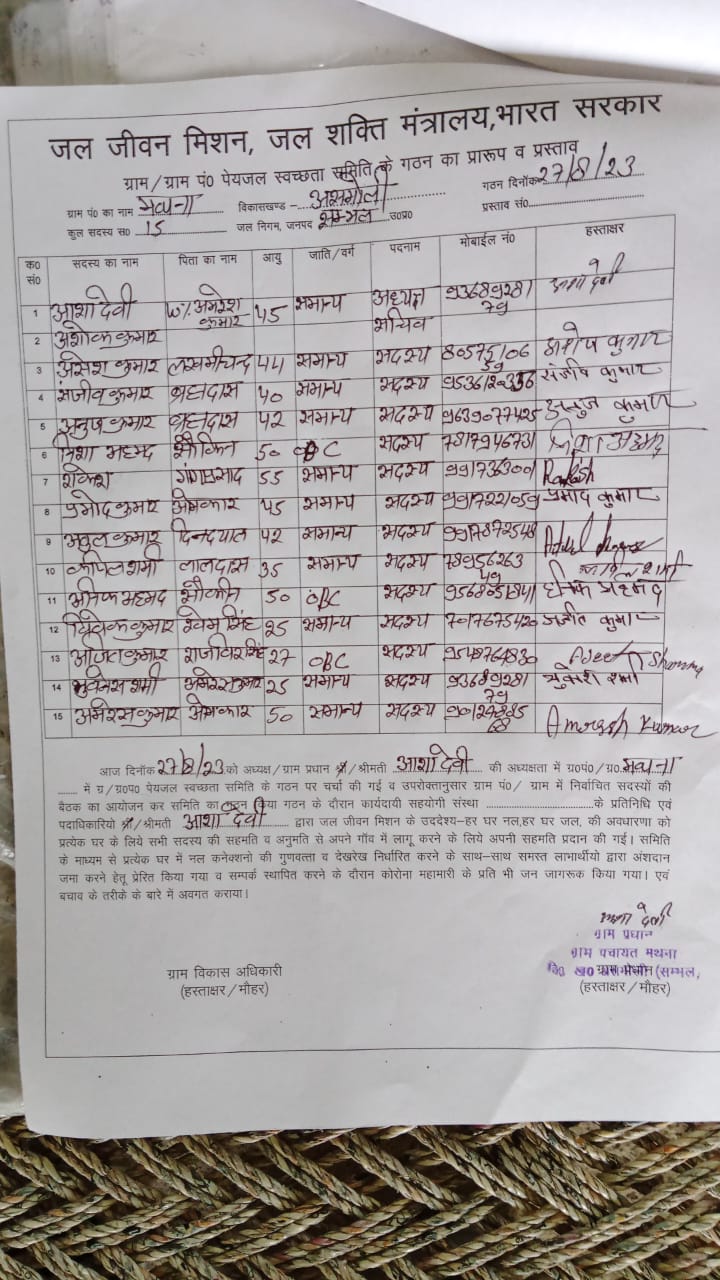 जल जीवन मिशन, जल शक्ति मंत्रालय,भारत सरकार
ग्राम/ग्राम पं० पेयजल स्वच्छता समिति के गठन का प्रारूप व प्रस्ताव
ग्राम पं० का नाम मथना विकासखण्ड - असमोली गठन दिनाँक 27/8/23
कुल सदस्य स० 15 जल निगम, जनपद सम्भल उ०प्र० प्रस्ताव सं०
क० सं० सदस्य का नाम पिता का नाम आयु जाति/वर्ग पदनाम मोबाईल नं० हस्ताक्षर
1 आशा देवी W/. अमरेश कुमार 45 समान्य अध्यक्ष 9368928179 आशा देवी
2 अशोक कुमार सचिव
3 असेश कुमार लखमीचन्द 44 समान्य सदस्य
4 संजीव कुमार ब्रह्मदास 40 समान्य सदस्य संजीव कुमार
5 अनुज कुमार ब्रह्मदास 42 समान्य सदस्य 9639077425 अनुज कुमार
6 शौकिन 50 OBC सदस्य 7817946731
7 राकेश गंगाप्रसाद 55 समान्य सदस्य 9917363001 Rakesh
8 प्रमोद कुमार ओमकार 45 समान्य सदस्य 9917221059 प्रमोद कुमार
9 अतुल कुमार दिनदयाल 42 समान्य सदस्य 9917872548
10 कपिल शर्मा लालदास 35 समान्य सदस्य 7895626349 कपिल शर्मा
11 अनिक महमद शौकीन 50 OBC सदस्य
12 कुमार 25 समान्य सदस्य 7017675420
13 अजित कुमार राजविर सिंह 27 OBC सदस्य 9548764830 Ajeet Sharma
14 शर्मा अमरेस कुमार 25 समान्य सदस्य 9368928179
15 अमरेस कुमार ओमकार 50 समान्य सदस्य Amresh Kumar
आज दिनाँक 27/8/23 को अध्यक्ष/ग्राम प्रधान श्री/श्रीमती आशा देवी की अध्यक्षता में ग्र०पं०/ग्रा० मथना
में ग्र/ग्र०प० पेयजल स्वच्छता समिति के गठन पर चर्चा की गई व उपरोक्तानुसार ग्राम पं०/ ग्राम में निर्वाचित सदस्यों की
बैठक का आयोजन कर समिति का गठन किया गठन के दौरान कार्यदायी सहयोगी संस्था के प्रतिनिधि एवं
पदाधिकारियो श्री/श्रीमती आशा देवी द्वारा जल जीवन मिशन के उददेश्य-हर घर नल,हर घर जल, की अवधारणा को
प्रत्येक घर के लिये सभी सदस्य की सहमति व अनुमति से अपने गाँव में लागू करने के लिये अपनी सहमति प्रदान की गई। समिति
के माध्यम से प्रत्येक घर में नल कनेक्शनो की गुणवत्ता व देखरेख निर्धारित करने के साथ-साथ समस्त लाभार्थीयो द्वारा अंशदान
जमा करने हेतू प्रेरित किया गया व सम्पर्क स्थापित करने के दौरान कोरोना महामारी के प्रति भी जन जागरूक किया गया। एवं
बचाव के तरीके के बारे में अवगत कराया।
आशा देवी
ग्राम प्रधान
ग्राम पचायत मथना
ग्राम विकास अधिकारी ग्राम प्रधान (सम्भल,
(हस्ताक्षर/मौहर) (हस्ताक्षर/मौहर)